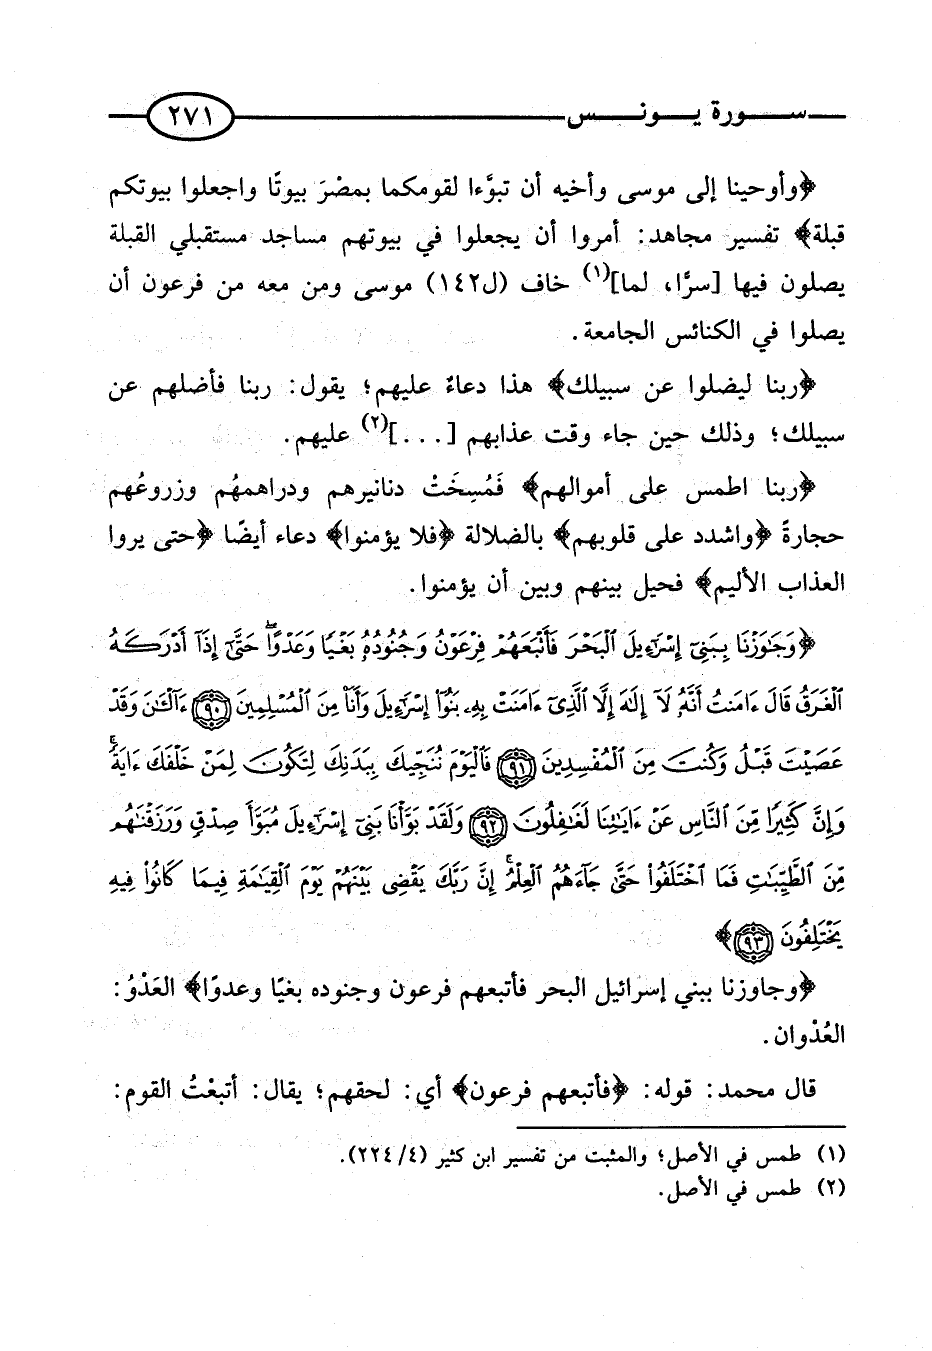 سورة يونس ٢٧١
﴿وأوحينا إلى موسى وأخيه أن تبوَّءا لقومكما بمصْرَ بيوتًا واجعلوا بيوتكم
قبلة﴾ تفسير مجاهد: أمروا أن يجعلوا في بيوتهم مساجد مستقبلي القبلة
يصلون فيها [سرًّا، لما](١) خاف (ل١٤٢) موسى ومن معه من فرعون أن
يصلوا في الكنائس الجامعة.
﴿ربنا ليضلوا عن سبيلك﴾ هذا دعاءٌ عليهم؛ يقول: ربنا فأضلهم عن
سبيلك؛ وذلك حين جاء وقت عذابهم [...](٢) عليهم.
﴿ربنا اطمس على أموالهم﴾ فَمُسِخَتْ دنانيرهم ودراهمهُم وزروعُهم
حجارةً ﴿واشدد على قلوبهم﴾ بالضلالة ﴿فلا يؤمنوا﴾ دعاء أيضًا ﴿حتى يروا
العذاب الأليم﴾ فحيل بينهم وبين أن يؤمنوا.
﴿وَجَٰوَزْنَا بِبَنِىٓ إِسْرَٰٓءِيلَ ٱلْبَحْرَ فَأَتْبَعَهُمْ فِرْعَوْنُ وَجُنُودُهُۥ بَغْيًا وَعَدْوًا ۖ حَتَّىٰٓ إِذَآ أَدْرَكَهُ
ٱلْغَرَقُ قَالَ ءَامَنتُ أَنَّهُۥ لَآ إِلَٰهَ إِلَّا ٱلَّذِىٓ ءَامَنَتْ بِهِۦ بَنُوٓا۟ إِسْرَٰٓءِيلَ وَأَنَا۠ مِنَ ٱلْمُسْلِمِينَ ٩٠ ءَآلْـَٰٔنَ وَقَدْ
عَصَيْتَ قَبْلُ وَكُنتَ مِنَ ٱلْمُفْسِدِينَ ٩١ فَٱلْيَوْمَ نُنَجِّيكَ بِبَدَنِكَ لِتَكُونَ لِمَنْ خَلْفَكَ ءَايَةً ۚ
وَإِنَّ كَثِيرًا مِّنَ ٱلنَّاسِ عَنْ ءَايَٰتِنَا لَغَٰفِلُونَ ٩٢ وَلَقَدْ بَوَّأْنَا بَنِىٓ إِسْرَٰٓءِيلَ مُبَوَّأَ صِدْقٍ وَرَزَقْنَٰهُم
مِّنَ ٱلطَّيِّبَٰتِ فَمَا ٱخْتَلَفُوا۟ حَتَّىٰ جَآءَهُمُ ٱلْعِلْمُ ۚ إِنَّ رَبَّكَ يَقْضِى بَيْنَهُمْ يَوْمَ ٱلْقِيَٰمَةِ فِيمَا كَانُوا۟ فِيهِ
يَخْتَلِفُونَ ٩٣﴾
﴿وجاوزنا ببني إسرائيل البحر فأتبعهم فرعون وجنوده بغيًا وعدوًا﴾ العَدْوُ:
العُدْوان.
قال محمد: قوله: ﴿فأتبعهم فرعون﴾ أي: لحقهم؛ يقال: أتبعْتُ القوم:
(١) طمس في الأصل؛ والمثبت من تفسير ابن كثير (٤/ ٢٢٤).
(٢) طمس في الأصل.